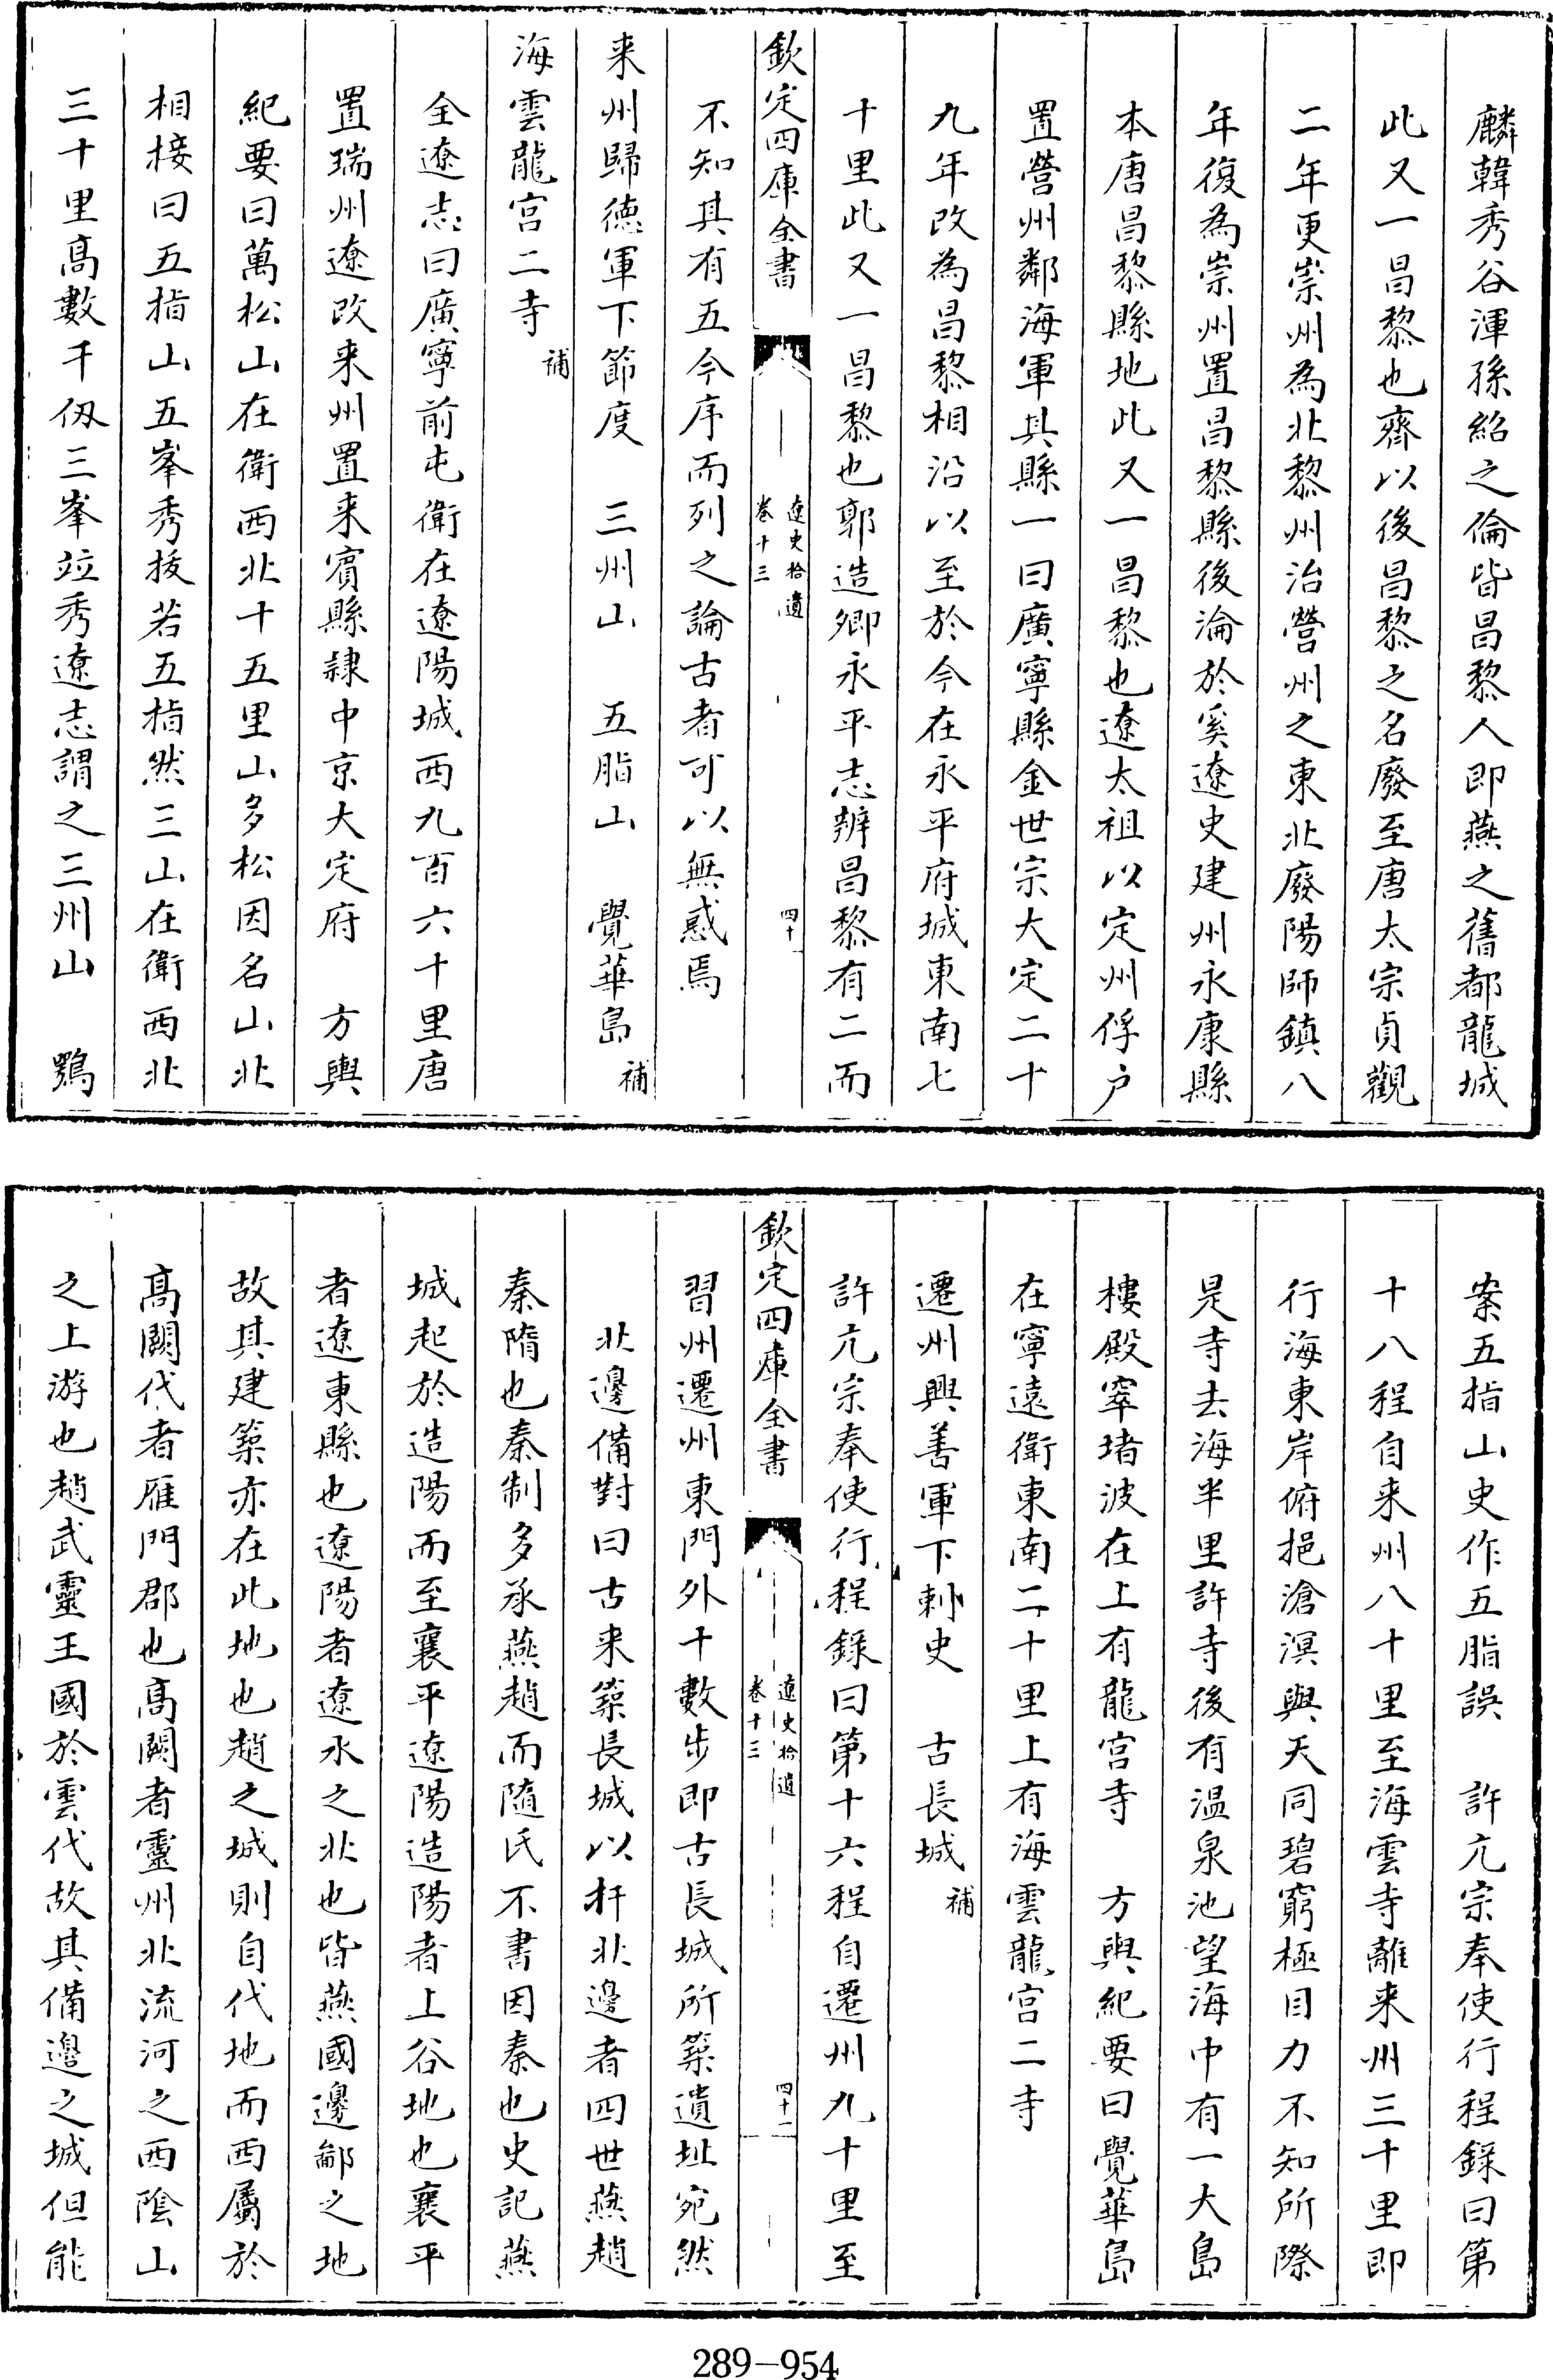 麟韓秀谷渾孫紹之倫皆昌黎人即燕之舊都龍城
此又一昌黎也齊以後昌黎之名廢至唐太宗貞觀
二年更崇州為北黎州治營州之東北廢陽師鎮八
年復為崇州置昌黎縣後淪於奚遼史建州永康縣
本唐昌黎縣地此又一昌黎也遼太祖以定州俘户
置營州鄰海軍其縣一曰廣寧縣金世宗大定二十
九年改為昌黎相沿以至於今在永平府城東南七
十里此又一昌黎也郭造卿永平志辨昌黎有二而
欽定四庫全書
遼史拾遺
卷十三
四十
不知其有五今序而列之論古者可以無惑焉
来州歸德軍下節度　三州山　五脂山　覺華島補
海雲龍宫二寺補
全遼志曰廣寧前屯衛在遼陽城西九百六十里唐
置瑞州遼改来州置来賓縣隷中京大定府　方輿
紀要曰萬松山在衛西北十五里山多松因名山北
相接曰五指山五峯秀拔若五指然三山在衛西北
三十里高數千仭三峯竝秀遼志謂之三州山　鶚
案五指山史作五脂誤　許亢宗奉使行程録曰第
十八程自来州八十里至海雲寺離来州三十里即
行海東岸俯挹滄溟與天同碧窮極目力不知所際
是寺去海半里許寺後有温泉池望海中有一大島
樓殿窣堵波在上有龍宫寺　方輿紀要曰覺華島
在寧遠衛東南二十里上有海雲龍宫二寺
遷州興善軍下刺史　古長城補
許亢宗奉使行程錄曰第十六程自遷州九十里至
欽定四庫全書
遼史拾遺
卷十三
四十一
習州遷州東門外十數步即古長城所築遺址宛然
北邊備對曰古来築長城以扞北邊者四世燕趙
秦隋也秦制多承燕趙而隨氏不書因秦也史記燕
城起於造陽而至襄平遼陽造陽者上谷地也襄平
者遼東縣也遼陽者遼水之北也皆燕國邊鄙之地
故其建築亦在此地也趙之城則自代地而西屬於
高闕代者雁門郡也高闕者靈州北流河之西陰山
之上游也趙武靈王國於雲代故其備邊之城但能
289-954